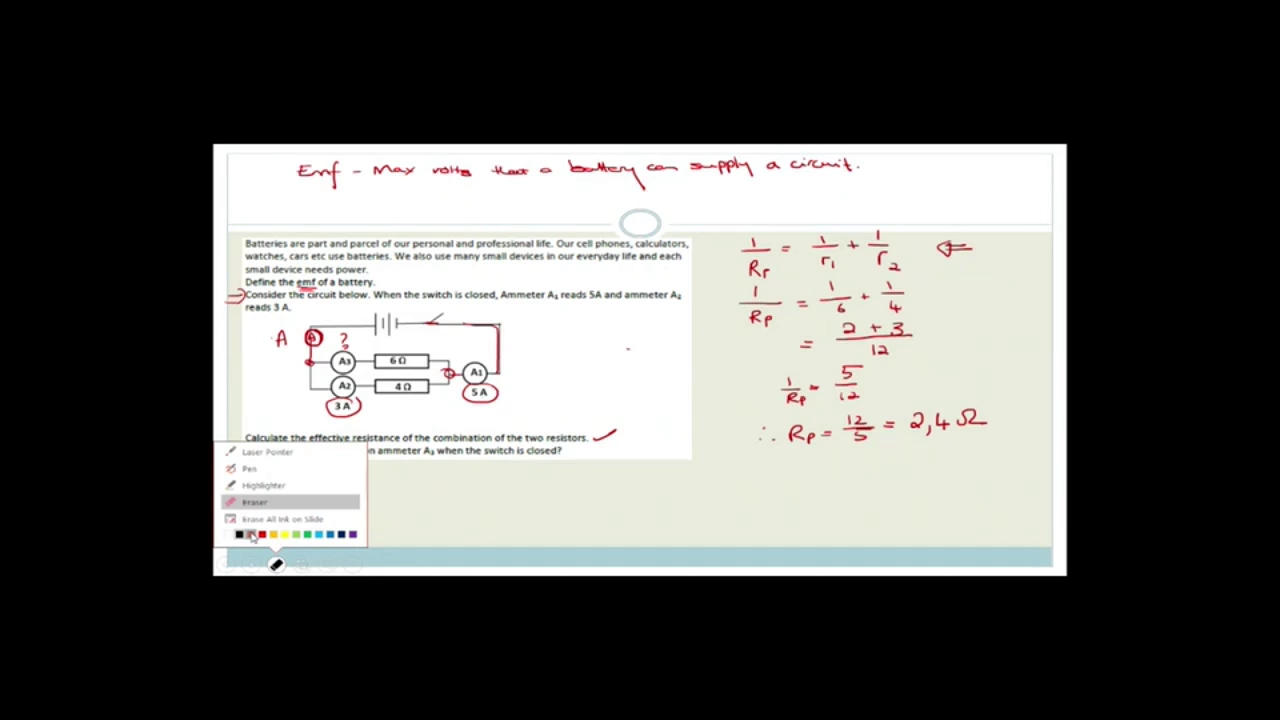 Emf - Max volts that a battery can supply a circuit.
Batteries are part and parcel of our personal and professional life. Our cell phones, calculators,
watches, cars etc use batteries. We also use many small devices in our everyday life and each
small device needs power.
Define the emf of a battery.
Consider the circuit below. When the switch is closed, Ammeter A₁ reads 5A and ammeter A₂
reads 3 A.
A
?
A₃ 6 Ω
A₁
A₂ 4 Ω
5 A
3 A
Calculate the effective resistance of the combination of the two resistors.
n ammeter A₃ when the switch is closed?
Laser Pointer
Pen
Highlighter
Eraser
Erase All Ink on Slide
1/Rp = 1/r₁ + 1/r₂ ⇐
1/Rp = 1/6 + 1/4
= 2 + 3/12
1/Rp = 5/12
∴ Rp = 12/5 = 2,4 Ω